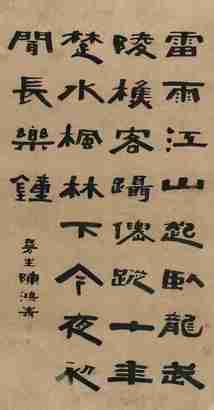 雷雨江山起臥龍武
陵樵客躡僊蹤十年
楚水楓林下今夜初
聞長樂鍾
曼生陳鴻壽